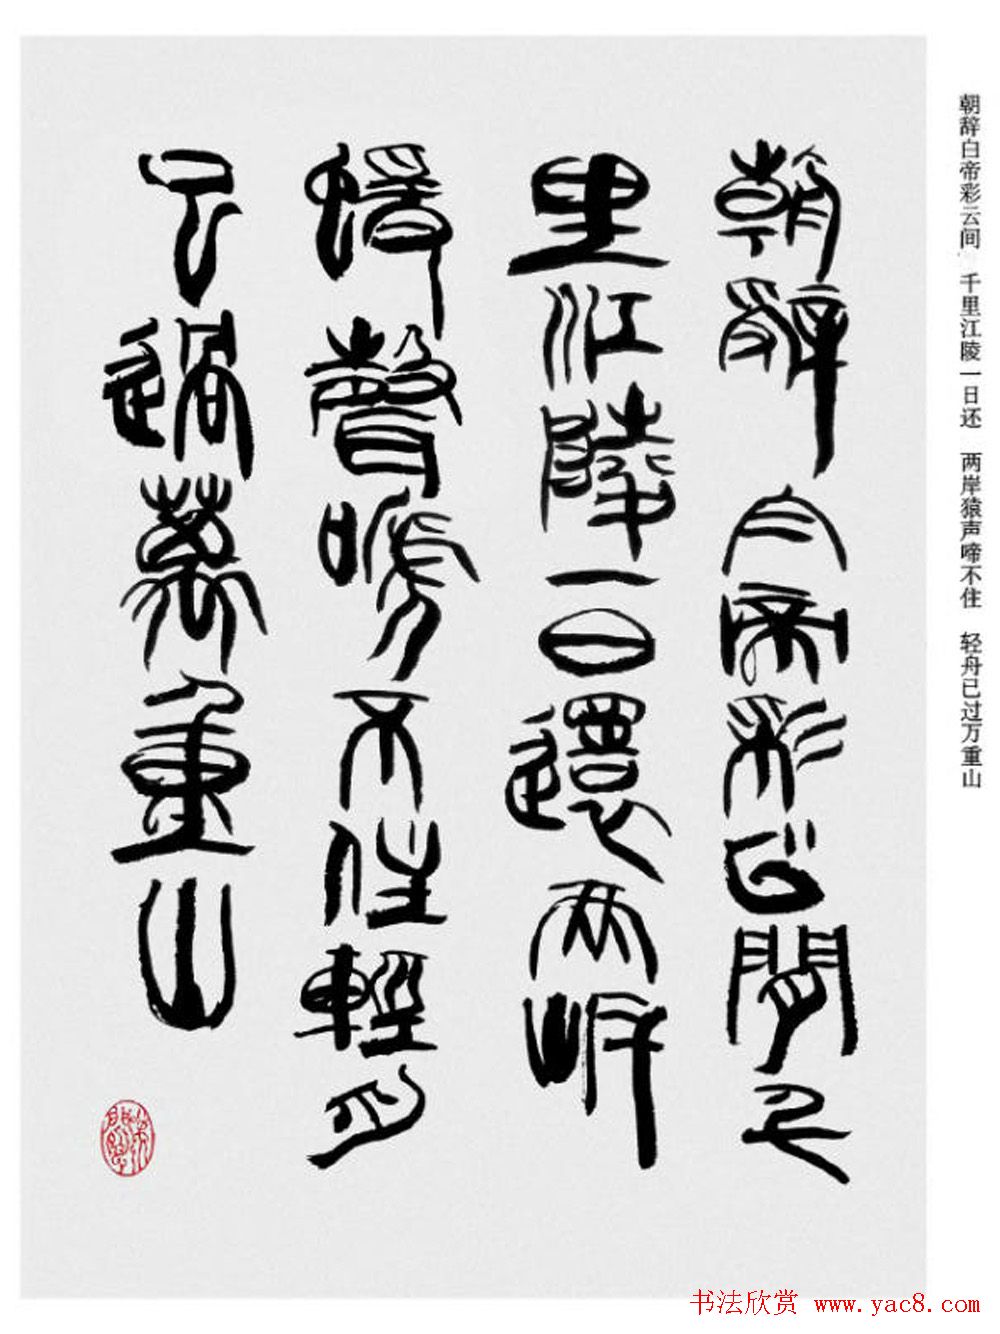 朝辞白帝彩云间 千里江陵一日还 两岸猿声啼不住 轻舟已过万重山
朝辭白帝彩云間千
里江陵一日還兩岸
蝯聲嗁不住輕舟
已過萬重山
书法欣赏 www.yac8.com